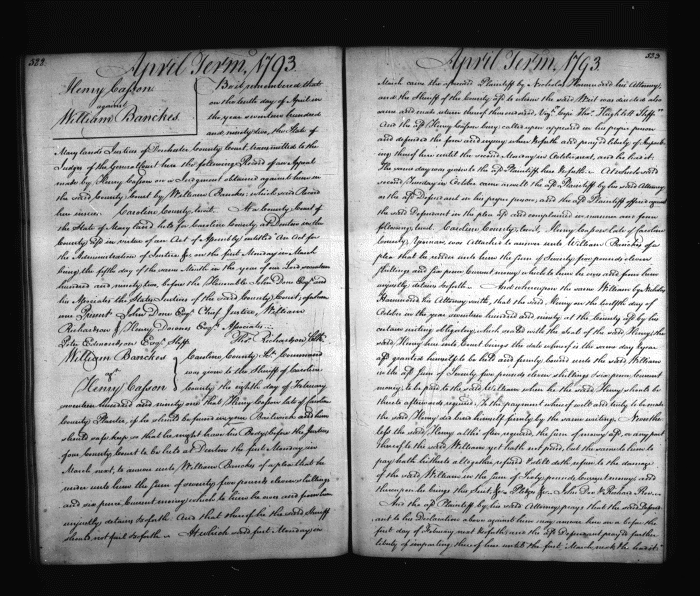 322.
April Term, 1793.
Henry Casson
against
William Banches
Be it remembered that
on the tenth day of April in
the year seventeen hundred
and ninety three, the State of
Maryland's Justices of Dorchester County Court transmitted to the
Judges of the General Court here the following Record of an Appeal
made by Henry Casson on a Judgment obtained against him in
the said County Court by William Banches; which said Record
here insues. Caroline County, Towit. At a County Court of
the State of Maryland held for Caroline County, at Denton in the
County afd. in virtue of an Act of Assembly entitled An Act for
the Administration of Justice &c on the first Monday in March
being the fifth day of the same Month in the year of our Lord seventeen
hundred and ninety two, before the Honorable John Done Esqr. and
his Associates the States Justices of the said County Court; of whom
were Present John Done Esqr. Chief Justice, William
Richardson & Henry Downes Esqrs. Associates.
Peter Edmondson Esqr. Shff. Wm. Richardson, Clk.
William Banches
vs
Henry Casson
Caroline County, Sc. Command
was given to the Sheriff of Caroline
County the eighth day of February
seventeen hundred and ninety one that Henry Casson late of Caroline
County, Planter, if he should be found in your Bailiwick and him
should safe keep so that he might have his Body before the Justices
of our County Court to be held at Denton the first Monday in
March next, to answer unto William Banches of a plea that he
render unto him the sum of seventy five pounds eleven shillings
and six pence Current money which to him he owes and from him
unjustly detains &c forth. And that thereof he the said Sheriff
should not fail &c forth. At which said first Monday in
323
April Term, 1793.
March came the aforesaid Plaintiff by Nicholas Hammond his Attorney,
and the Sheriff of the County afd. to whom the said Writ was directed also
came and made return thereof thus endorsed
And the afd. Henry Casson being called upon appeared in his proper person
and defended the force and injury when &c forth and prayed liberty of Imparling
thereof here until the second Monday in October next, and he had it.
The same day was given to the afd. Plaintiff, here &c forth. At which said
second Tuesday in October came as well the afd. Plaintiff by his said Attorney
as the afd. Defendant in his proper person; and the afd. Plaintiff offered against
the said Defendant in the plea afd. and complained in manner and form
following, towit. Caroline County, towit, Henry Casson late of Caroline
County, Yeoman, was attached to answer unto William Banches of a
plea that he render unto him the sum of Seventy five pounds eleven
shillings and six pence Current money which to him he owes and from him
unjustly detains &c forth. And whereupon the same William by Nicholas
Hammond his Attorney saith, that the said Henry on the twelfth day of
October in the year seventeen hundred and ninety at the County afd. by his
certain writing obligatory, which sealed with the seal of the said Henry, the
said Henry here into Court brings the date whereof is the same day & year
afd. granted himself to be held and firmly bound unto the said William
in the afd. sum of Seventy five pounds eleven shillings & six pence Current
money, to be paid to the said William when he the said Henry should be
thereto afterwards required. To the payment whereof well and truly to be made
the said Henry did bind himself firmly by the same writing. Nevertheless
the said Henry altho' often required, the sum of money afd. or any part
thereof to the said William yet hath not paid, but the same to him to
pay hath hitherto altogether refused & still doth refuse to the damage
of the said William in the sum of Forty pounds Current money; and
thereupon he brings the Suit, &c. Pledges &c. John Doe & Richard Roe.
And the afd. Plaintiff by his said Attorney prays that the said Defendant
to his Declaration above against him may answer him on or before the
first day of February next &c forth; and the afd. Defendant prayed further
liberty of imparling thereof here until the first March next & he had it.